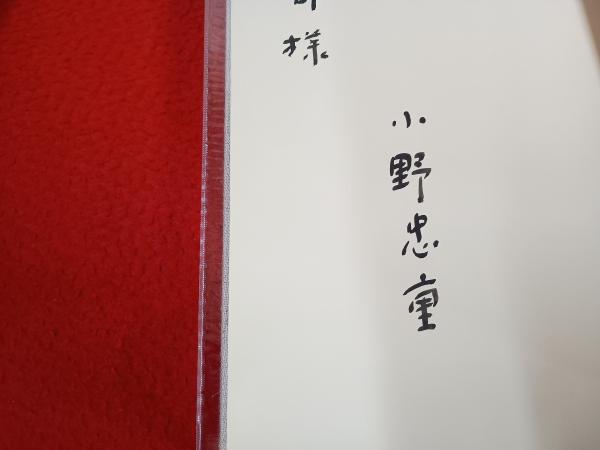 様
小野忠重